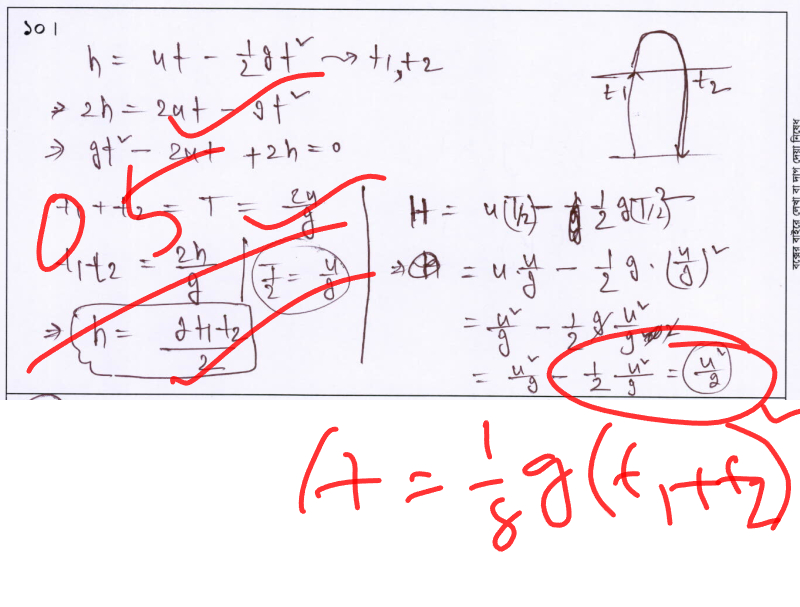 ১০।
h = ut - 1/2 gt² → t1, t2
⇒ 2h = 2ut - gt²
⇒ gt² - 2ut + 2h = 0
t1 + t2 = T = 2u/g
t1t2 = 2h/g
T/2 = u/g
⇒ h = gt1t2/2
t1
t2
H = u(T/2) - 1/2 g(T/2)²
⇒ H = u u/g - 1/2 g·(u/g)²
= u²/g - 1/2 g u²/g²
= u²/g - 1/2 u²/g = u²/g
বক্সের বাইরে লেখা বা দাগ দেয়া নিষেধ
0.5
H = 1/8 g(t1+t2)